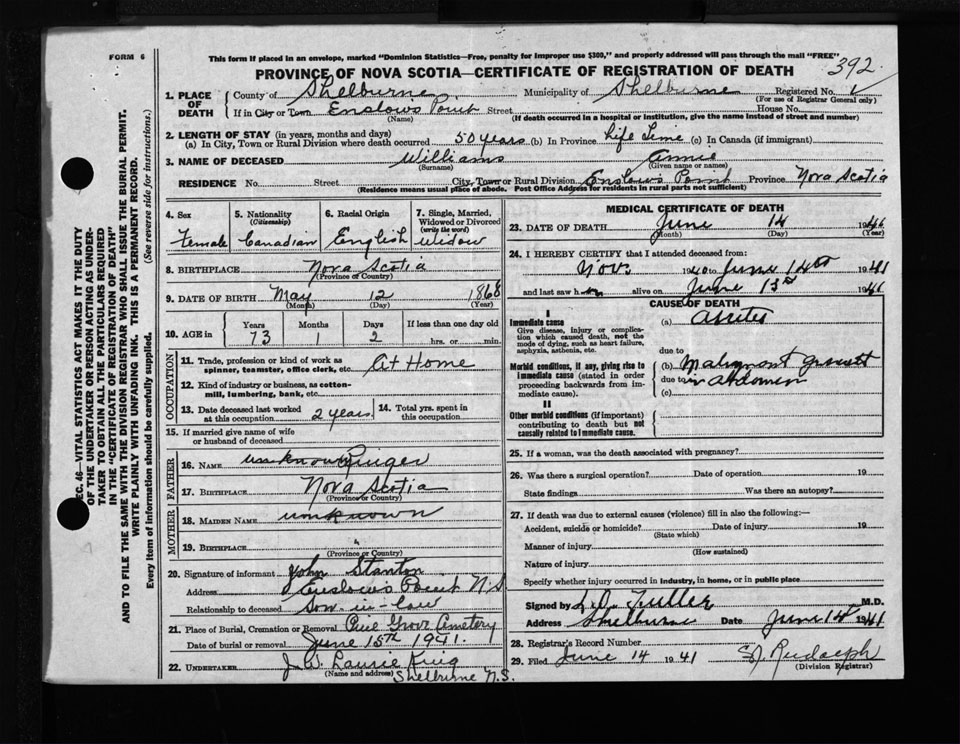 FORM 6
This form if placed in an envelope, marked "Dominion Statistics—Free, penalty for improper use $300," and properly addressed will pass through the mail "FREE"
PROVINCE OF NOVA SCOTIA—CERTIFICATE OF REGISTRATION OF DEATH
392
1. PLACE OF DEATH
County of Shelburne Municipality of Shelburne Registered No.
(For use of Registrar General only)
If in City or Town Enslows Point Street House No.
(Name) (If death occurred in a hospital or institution, give the name instead of street and number)
2. LENGTH OF STAY (in years, months and days)
(a) In City, Town or Rural Division where death occurred 50 years (b) In Province life time (c) In Canada (if immigrant)
3. NAME OF DECEASED Williams Annie
(Surname) (Given name or names)
RESIDENCE No. Street City, Town or Rural Division Enslows Point Province Nova Scotia
(Residence means usual place of abode. Post Office Address for residents in rural parts not sufficient)
4. Sex Female
5. Nationality (Citizenship) Canadian
6. Racial Origin English
7. Single, Married, Widowed or Divorced (write the word) Widow
8. BIRTHPLACE Nova Scotia
(Province or Country)
9. DATE OF BIRTH May 12 1868
(Month) (Day) (Year)
10. AGE in Years Months Days If less than one day old
73 1 2 hrs. or min.
OCCUPATION
11. Trade, profession or kind of work as spinner, teamster, office clerk, etc. At Home
12. Kind of industry or business, as cotton-mill, lumbering, bank, etc.
13. Date deceased last worked at this occupation 2 years
14. Total yrs. spent in this occupation
15. If married give name of wife or husband of deceased
FATHER
16. NAME unknown Ringer
17. BIRTHPLACE Nova Scotia
(Province or Country)
MOTHER
18. MAIDEN NAME unknown
19. BIRTHPLACE
(Province or Country)
20. Signature of informant John Stanton
Address Enslows Point N.S
Relationship to deceased Son-in-law
21. Place of Burial, Cremation or Removal Pine Grove Cemetery
Date of burial or removal June 15th 1941.
22. UNDERTAKER J.W. Laurie King
(Name and address) Shelburne N.S.
MEDICAL CERTIFICATE OF DEATH
23. DATE OF DEATH June 14 1941
(Month) (Day) (Year)
24. I HEREBY CERTIFY that I attended deceased from:
Nov. 1940 to June 14th 1941
and last saw h alive on June 13 1941
CAUSE OF DEATH
I
Immediate cause (a)
Give disease, injury or complication which caused death, not the mode of dying, such as heart failure, asphyxia, asthenia, etc.
due to
Morbid conditions, if any, giving rise to immediate cause (stated in order proceeding backwards from immediate cause).
(b) Malignant growth
due to in abdomen
(c)
II
Other morbid conditions (if important) contributing to death but not causally related to immediate cause.
25. If a woman, was the death associated with pregnancy?
26. Was there a surgical operation? Date of operation 19
State findings Was there an autopsy?
27. If death was due to external causes (violence) fill in also the following:—
Accident, suicide or homicide? Date of injury 19
(State which)
Manner of injury
(How sustained)
Nature of injury
Specify whether injury occurred in industry, in home, or in public place
Signed by L.O. Fuller M.D.
Address Shelburne Date June 14th 1941
28. Registrar's Record Number
29. Filed June 14 1941 Rudolph
(Division Registrar)
SEC. 46—VITAL STATISTICS ACT MAKES IT THE DUTY
OF THE UNDERTAKER OR PERSON ACTING AS UNDER-
TAKER TO OBTAIN ALL THE PARTICULARS REQUIRED
IN THE "CERTIFICATE OF REGISTRATION OF DEATH"
AND TO FILE THE SAME WITH THE DIVISION REGISTRAR WHO SHALL ISSUE THE BURIAL PERMIT.
WRITE PLAINLY WITH UNFADING INK. THIS IS A PERMANENT RECORD.
Every item of information should be carefully supplied. (See reverse side for instructions.)